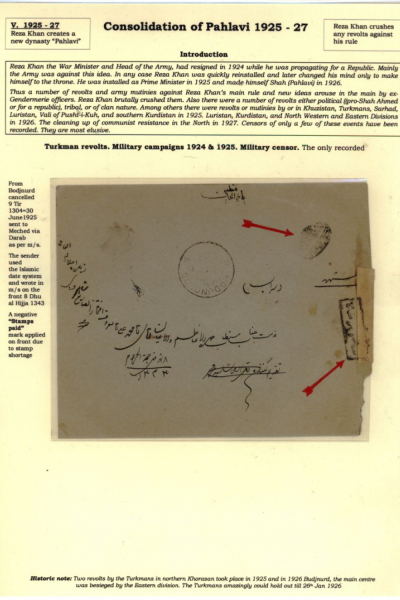 V. 1925 - 27
Reza Khan creates a
new dynasty "Pahlavi"
Consolidation of Pahlavi 1925 - 27
Reza Khan crushes
any revolts against
his rule
Introduction
Reza Khan the War Minister and Head of the Army, had resigned in 1924 while he was propagating for a Republic. Mainly
the Army was against this idea. In any case Reza Khan was quickly reinstalled and later changed his mind only to make
himself to the throne. He was installed as Prime Minister in 1925 and made himself Shah (Pahlavi) in 1926.
Thus a number of revolts and army mutinies against Reza Khan's main rule and new ideas arouse in the main by ex-
Gendermerie officers. Reza Khan brutally crushed them. Also there were a number of revolts either political (pro-Shah Ahmed
or for a republic), tribal, or of clan nature. Among others there were revolts or mutinies by or in Khuzistan, Turkmans, Sarhad,
Luristan, Vali of Pusht-i-Kuh, and southern Kurdistan in 1925. Luristan, Kurdistan, and North Western and Eastern Divisions
in 1926. The cleaning up of communist resistance in the North in 1927. Censors of only a few of these events have been
recorded. They are most elusive.
Turkman revolts. Military campaigns 1924 & 1925. Military censor. The only recorded
From
Bodjnurd
cancelled
9 Tir
1304=30
June1925
sent to
Meched via
Darab
as per m/s.
The sender
used
the Islamic
date system
and wrote in
m/s on the
front 8 Dhu
al Hijja 1343
A negative
"Stamps
paid"
mark applied
on front due
to stamp
shortage
Historic note: Two revolts by the Turkmans in northern Khorasan took place in 1925 and in 1926 Budjnurd, the main centre
was besieged by the Eastern division. The Turkmans amazingly could hold out till 26th Jan 1926